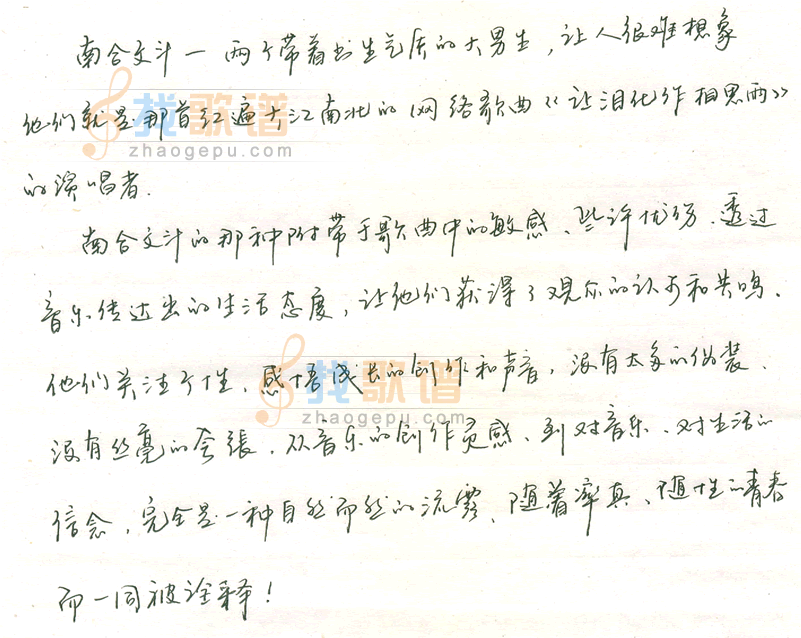 南合文斗一两个带着书生气质的大男生，让人很难想象
他们就是那首红遍大江南北的网络歌曲《让泪化作相思雨》
找歌谱
zhaogepu.com
的演唱者.
南合文斗的那种附带于歌曲中的敏感、些许忧伤、透过
音乐传达出的生活态度，让他们获得了观众的认可和共鸣.
他们关注个性、感悟成长的创作和声音，没有太多的伪装、
找歌谱
zhaogepu.com
没有丝毫的夸張、从音乐的创作灵感、到对音乐、对生活的
信念，完全是一种自然而然的流露、随着率真、随性的青春
而一同被诠释！